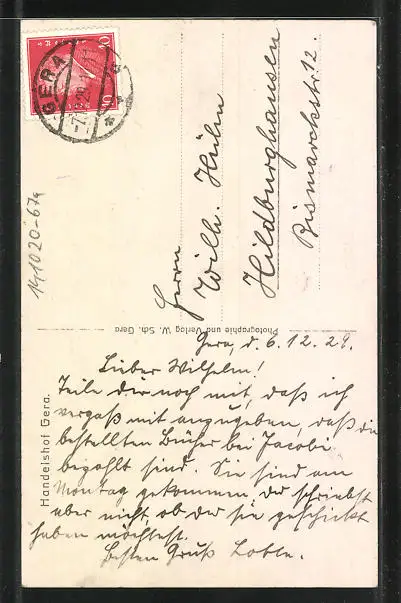 GERA
7.12.29
10
10
Herrn
Wilh. Hühn
Hildburghausen
Bismarckstr. 12.
141020-679
Photographie und Verlag W. Sch. Gera
Handelshof Gera.
Gera, d. 6.12.29.
Lieber Wilhelm!
Teile dir noch mit, daß ich
vergaß mit anzugeben, daß die
bestellten Bücher bei Jacobi
bezahlt sind. Sie sind am
Montag gekommen, du schriebst
aber nicht, ob du sie geschickt
haben möchtest.
Besten Gruß